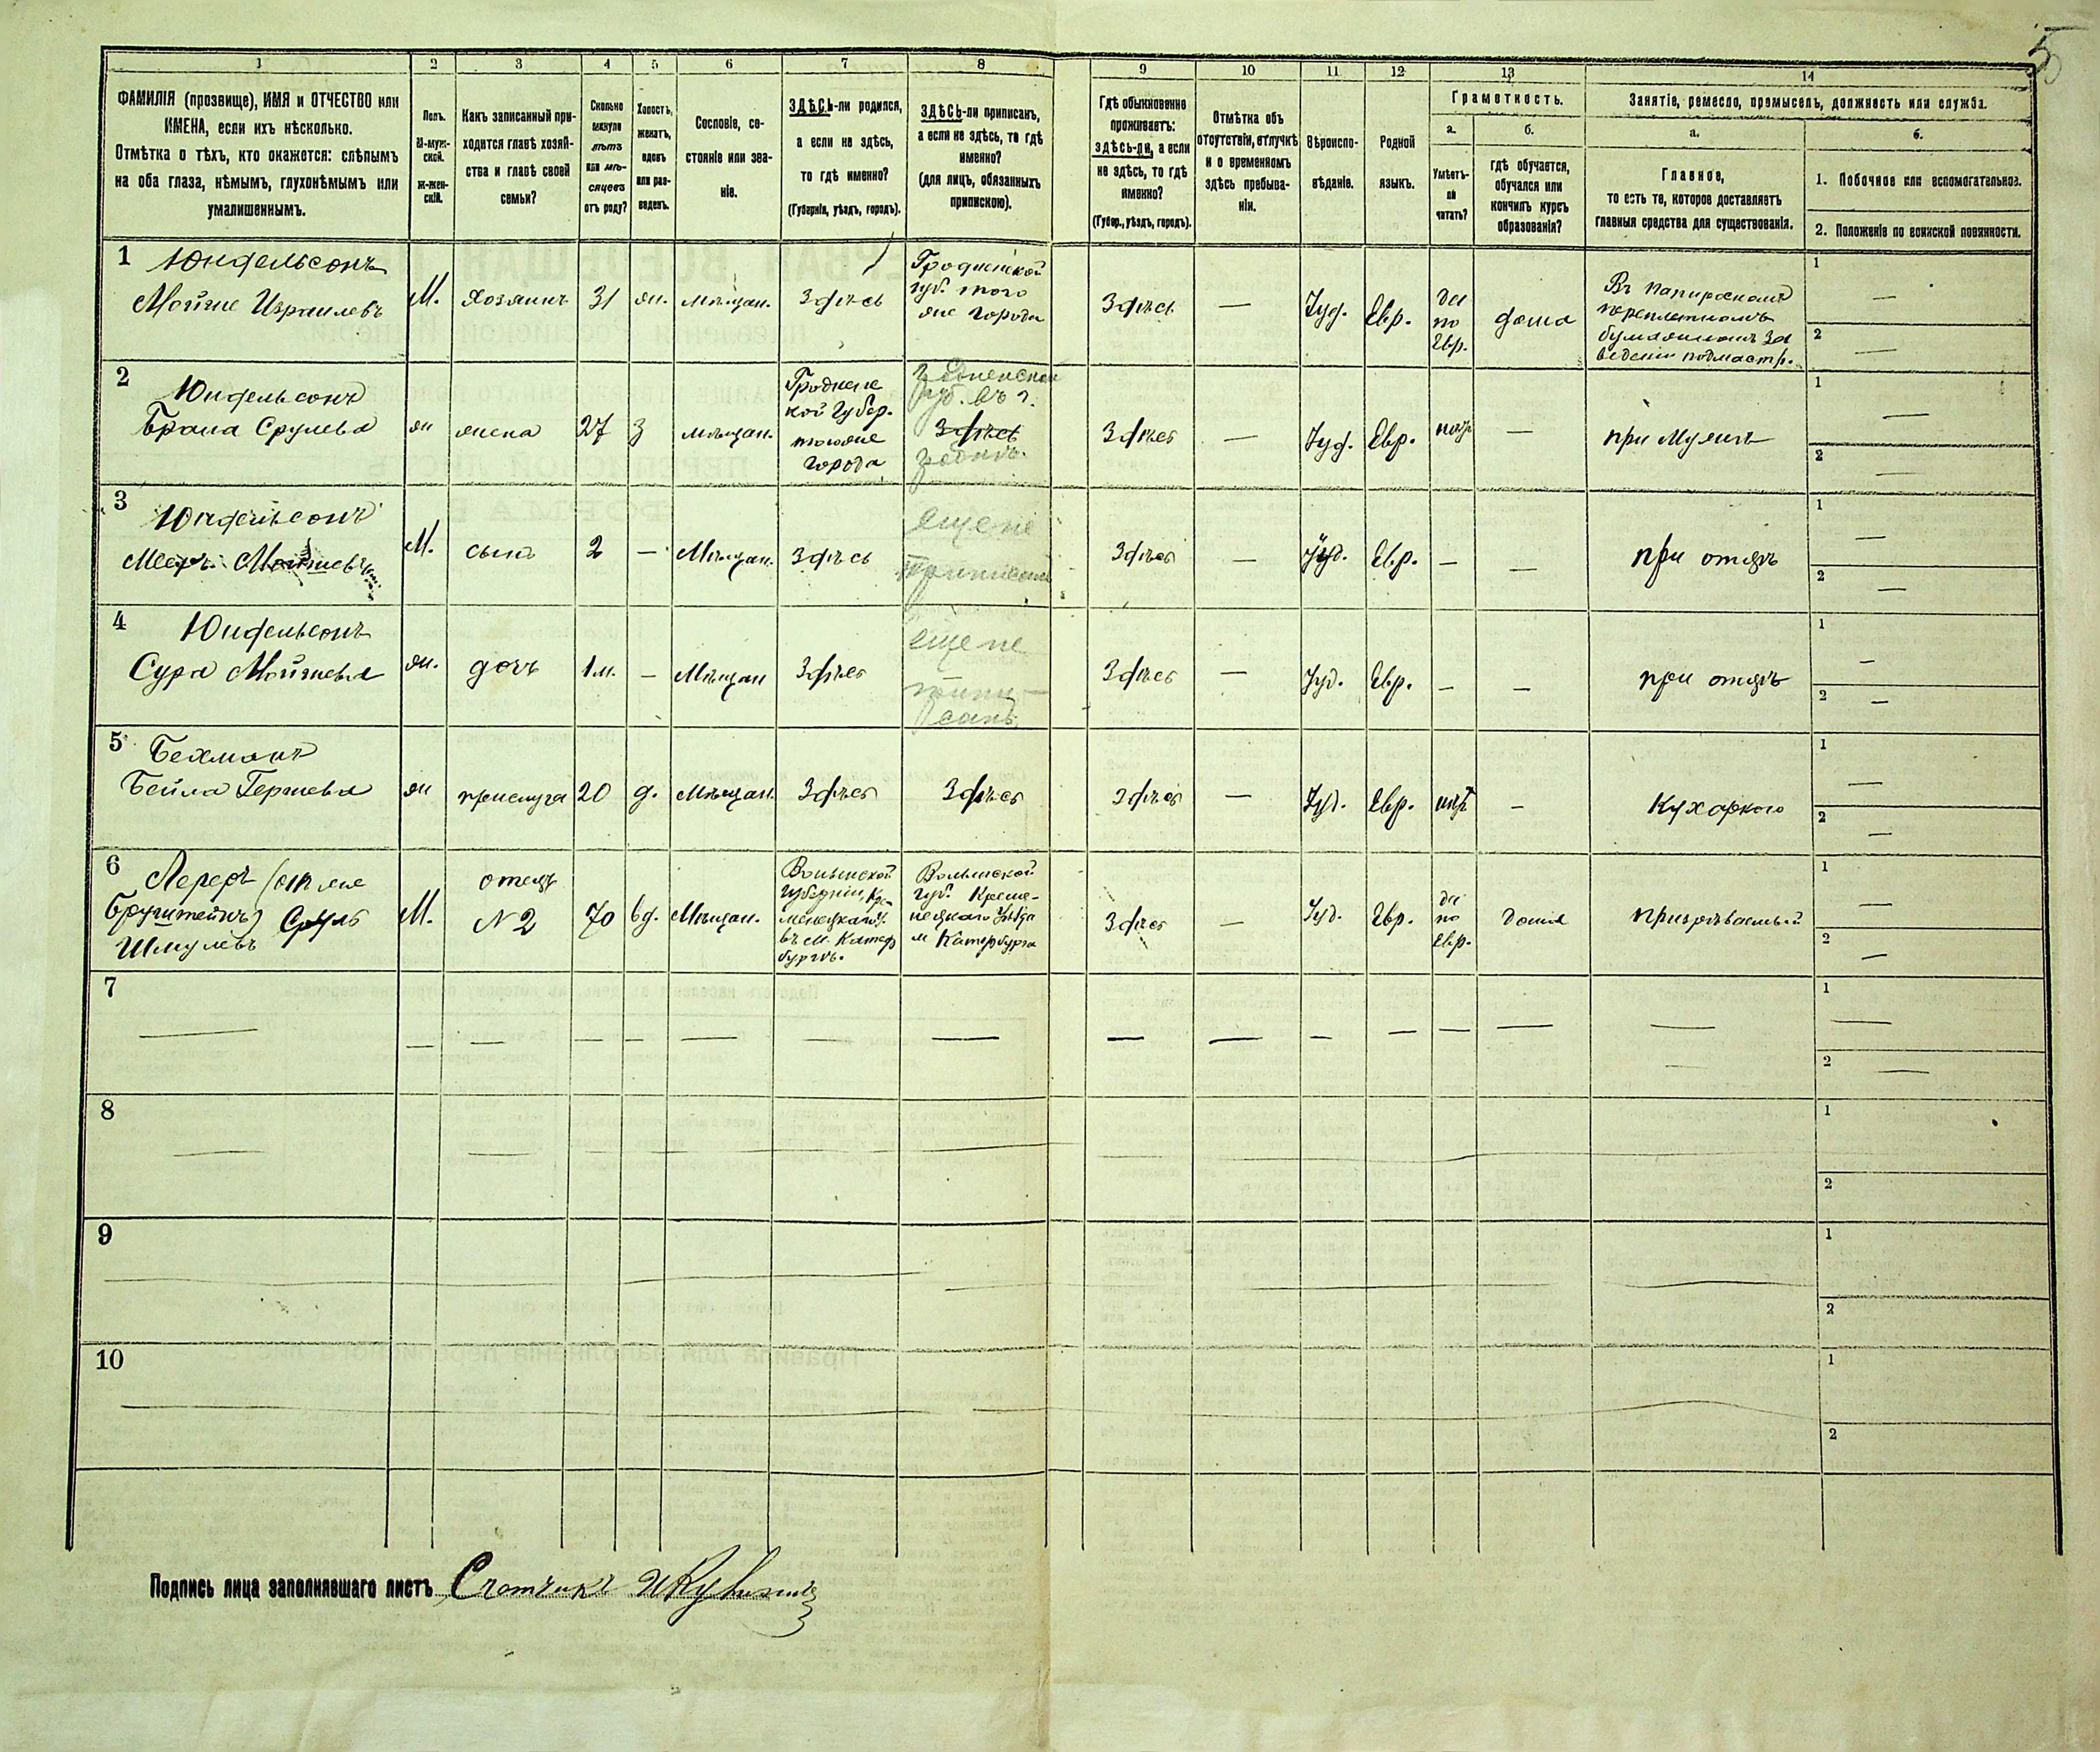 5
1 2 3 4 5 6 7 8 9 10 11 12 13 14
ФАМИЛІЯ (прозвище), ИМЯ и ОТЧЕСТВО или
ИМЕНА, если ихъ нѣсколько.
Отмѣтка о тѣхъ, кто окажется: слѣпымъ
на оба глаза, нѣмымъ, глухонѣмымъ или
умалишеннымъ.
Полъ.
М-муж-
ской.
Ж-жен-
скій.
Какъ записанный при-
ходится главѣ хозяй-
ства и главѣ своей
семьи?
Сколько
минуло
лѣтъ
или мѣ-
сяцевъ
отъ роду?
Холостъ,
женатъ,
вдовъ
или раз-
веденъ.
Сословіе, со-
стояніе или зва-
ніе.
ЗДѢСЬ-ли родился,
а если не здѣсь,
то гдѣ именно?
(Губернія, уѣздъ, городъ).
ЗДѢСЬ-ли приписанъ,
а если не здѣсь, то гдѣ
именно?
(для лицъ, обязанныхъ
припискою).
Гдѣ обыкновенно
проживаетъ:
здѣсь-ли, а если
не здѣсь, то гдѣ
именно?
(Губер., уѣздъ, городъ).
Отмѣтка объ
отсутствіи, отлучкѣ
и о временномъ
здѣсь пребыва-
ніи.
Вѣроиспо-
вѣданіе.
Родной
языкъ.
Грамотность.
а.
Умѣетъ-
ли
читать?
б.
гдѣ обучается,
обучался или
кончилъ курсъ
образованія?
Занятіе, ремесло, промыселъ, должность или служба.
а.
Главное,
то есть то, которое доставляетъ
главныя средства для существованія.
б.
1. Побочное или вспомогательное.
2. Положеніе по воинской повинности.
1 Юндельсонъ
Мойше Израилевъ
М.
хозяинъ
31
ж.
мѣщан.
Здѣсь
Гродненской
губ. того
же города
Здѣсь
—
Іуд.
Евр.
да
по
Евр.
дома
Въ папиросномъ
переплетномъ
1 —
2 —
2 Юндельсонъ
Брайна Срулева
ж
жена
27
З
мѣщан.
Гродненс
кой Губер.
тогоже
города
Здѣсь
Здѣсь
—
Іуд.
Евр.
нѣтъ
—
при Мужѣ
1 —
2 —
3 Юндельсонъ
М.
сынъ
2
—
Мѣщан.
Здѣсь
еще не
приписанъ
Здѣсь
—
Іуд.
Евр.
—
—
при отцѣ
1 —
2 —
4 Юндельсонъ
Сура Мойшева
ж.
дочь
1 м.
—
Мѣщан
Здѣсь
еще не
припи-
санъ
Здѣсь
—
Іуд.
Евр.
—
—
при отцѣ
1 —
2 —
5 Бехманъ
Бейла Гершева
ж
прислуга
20
д.
Мѣщан.
Здѣсь
Здѣсь
Здѣсь
—
Іуд.
Евр.
нѣтъ
—
Кухаркою
1 —
2 —
6 Лереръ (онъ же
Бругштейнъ) Сруль
Шмулевъ
М.
отецъ
№ 2
70
вд.
Мѣщан.
Волынской
губерніи, Кре-
менецкаго у.
въ м. Катер
бургѣ.
Волынской
губ. Креме-
нецкаго Уѣзда
м Катербурга
Здѣсь
—
Іуд.
Евр.
да
по
Евр.
дома
призрѣваемый
1 —
2 —
7
1 —
2 —
8
1
2
9
1
2
10
1
2
Подпись лица заполнявшаго листъ Счетчикъ